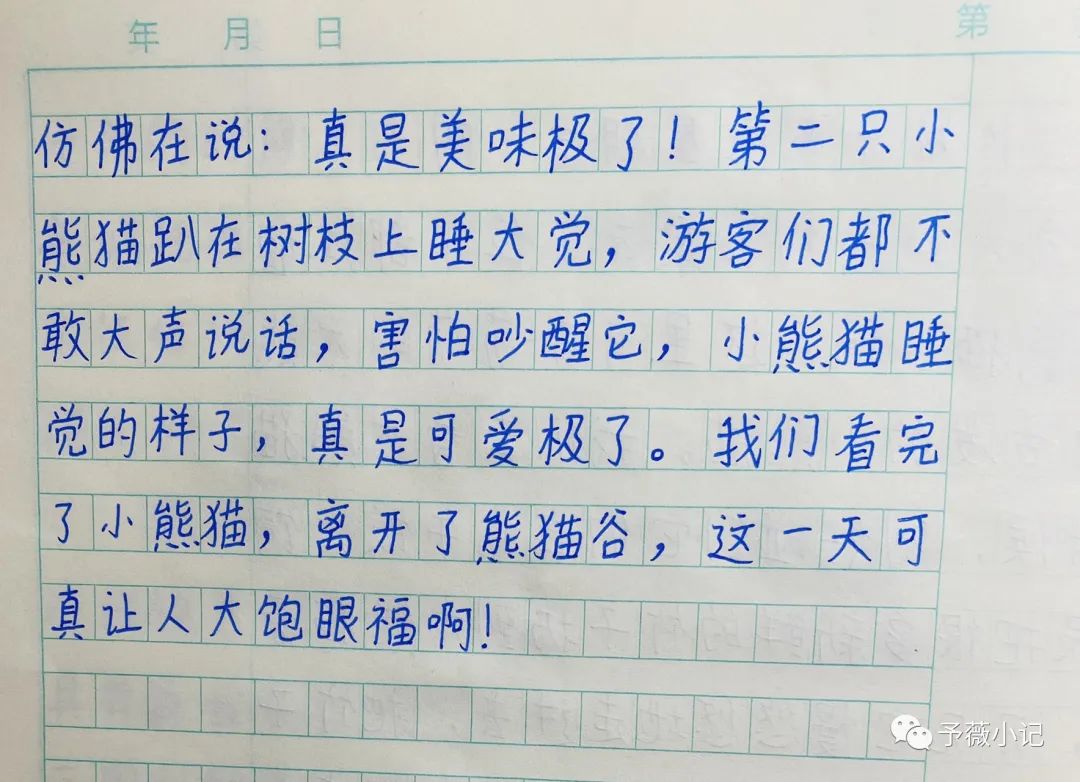 年 月 日 第
仿佛在说：真是美味极了！第二只小
熊猫趴在树枝上睡大觉，游客们都不
敢大声说话，害怕吵醒它，小熊猫睡
觉的样子，真是可爱极了。我们看完
了小熊猫，离开了熊猫谷，这一天可
真让人大饱眼福啊！
予薇小记